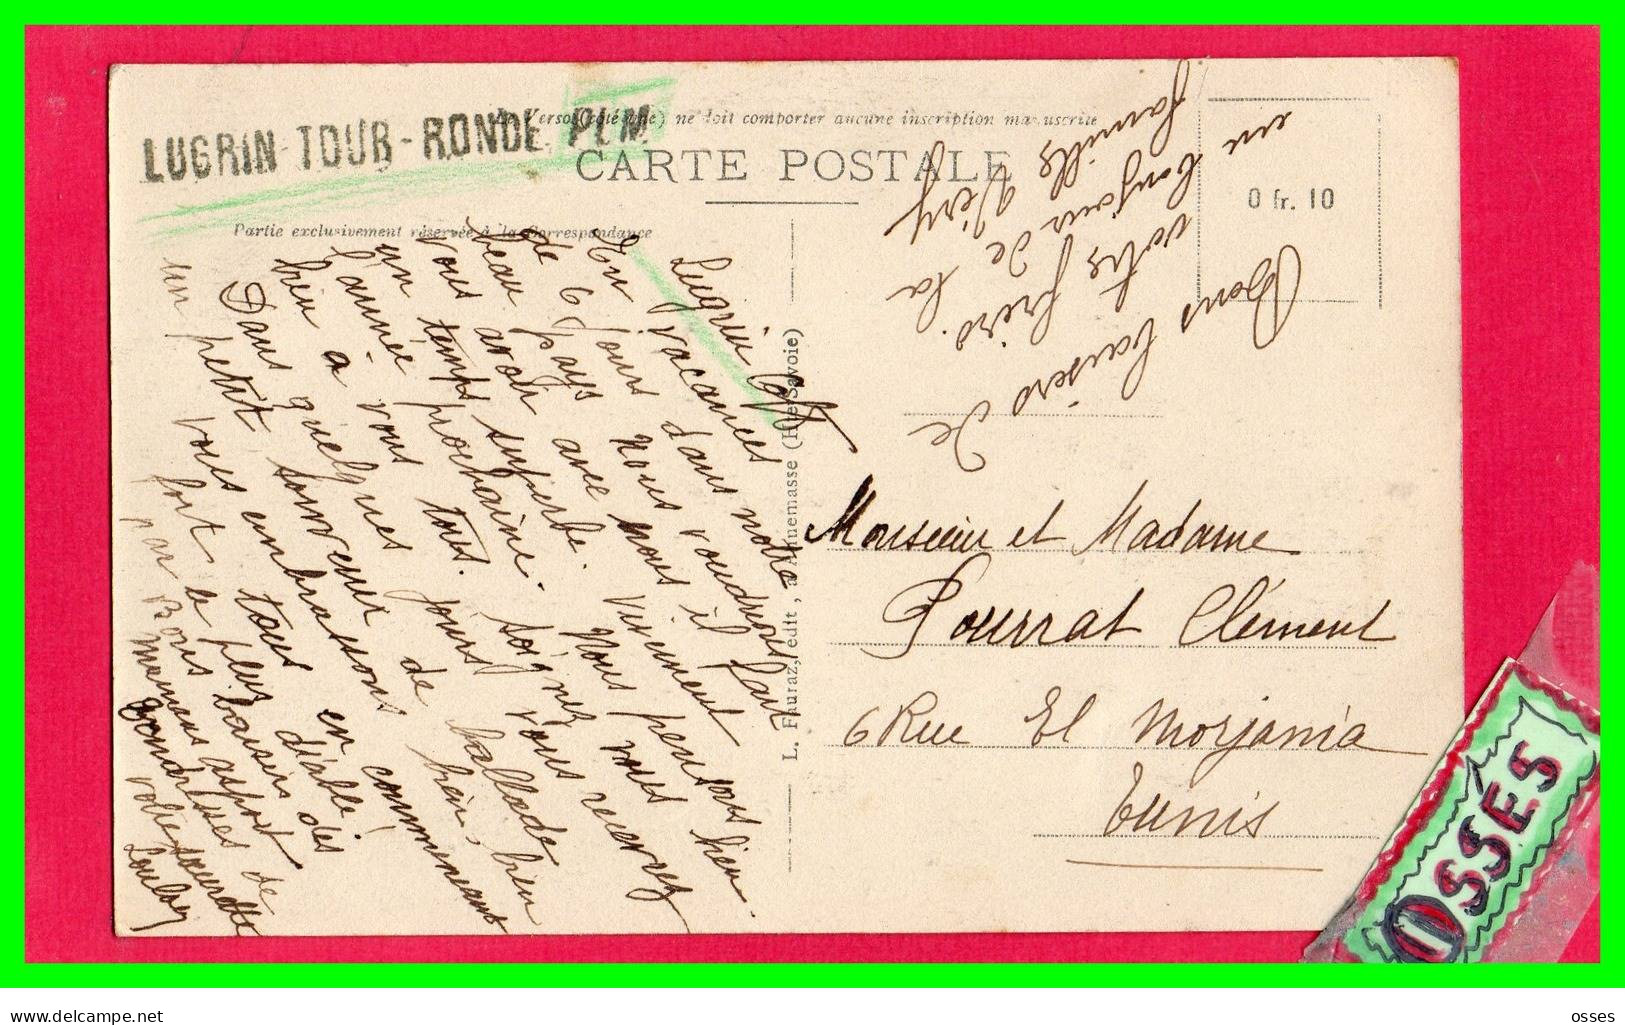 LUGRIN-TOUR-RONDE PLM
Le Verso (côté vue) ne doit comporter aucune inscription manuscrite
CARTE POSTALE
Partie exclusivement réservée à la Correspondance
0 fr. 10
Lugrin
En vacances
de 6 jours dans notre
beau pays nous voudrions
vous avoir avec nous il fait
un temps superbe. vivement
l'année prochaine. Nous pensons bien
bien à vous tous. soignez vous
Dans quelques jours vous recevrez
un petit souvenir de ballade
vous embrassons bien, bien
fort tous en commençant
par le plus diable!
Bons baisers des
Mamans
de
votre sœurette
Loulou
Bons baisers de
votre frère.
un bonjour de la
famille Véry
L. Fauraz, édit., à Annemasse (Hte-Savoie)
Monsieur et Madame
Pourrat Clément
6 Rue El Morjania
Tunis
OSSÈS
delcampe.net
osses